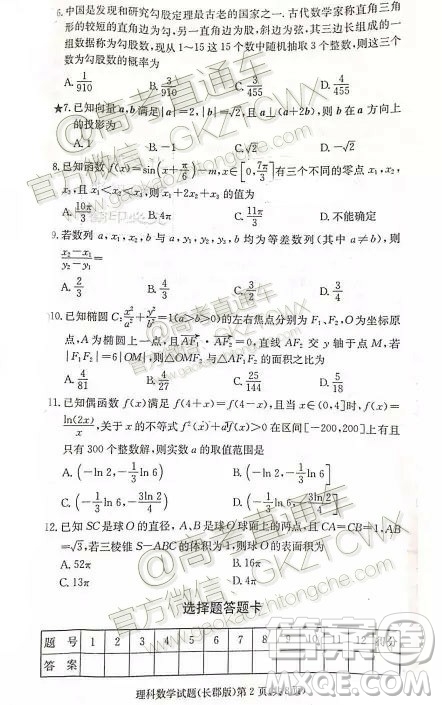 6.中国是发现和研究勾股定理最古老的国家之一. 古代数学家称直角三角
形的较短的直角边为勾、另一直角边为股、斜边为弦,其三边长组成的一
组数据称为勾股数,现从1~15这15个数中随机抽取3个整数,则这三个
数为勾股数的概率为
A. 1/910 B. 3/910 C. 3/455 D. 4/455
★7. 已知向量a,b满足|a|=2,|b|=√2,且a⊥(a+2b),则b在a方向上
的投影为
A. 1 B. -1 C. √2 D. -√2
8. 已知函数 f(x)=sin(x+π/6)-m,x∈[0,7π/3]有三个不同的零点x₁,x₂,
x₃,且x₁<x₂<x₃,则x₁+2x₂+x₃的值为
A. 10π/3 B. 4π C. 11π/3 D. 不能确定
9. 若数列a,x₁,x₂,b与a,y₁,y₂,y₃,b均为等差数列(其中a≠b),则
(x₂-x₁)/(y₂-y₁)=
A. 2/3 B. 4/3 C. 3/2 D. 3/4
10. 已知椭圆C:x²/a²+y²/b²=1(a>b>0)的左右焦点分别为F₁、F₂,O为坐标原
点,A为椭圆上一点,且AF₁·AF₂=0,直线AF₂交y轴于点M,若
|F₁F₂|=6|OM|,则△OMF₂与△AF₁F₂的面积之比为
A. 4/81 B. 4/27 C. 25/144 D. 5/18
11. 已知偶函数f(x)满足f(4+x)=f(4-x),且当x∈(0,4]时,f(x)=
ln(2x)/x,关于x的不等式f²(x)+af(x)>0在区间[-200,200]上有且
只有300个整数解,则实数a的取值范围是
A. (-ln 2,-1/3 ln 6) B. (-ln 2,-1/3 ln 6]
C. (-1/3 ln 6,-3ln 2/4) D. (-1/3 ln 6,-3ln 2/4]
12. 已知SC是球O的直径,A,B是球O球面上的两点,且CA=CB=1,AB
=√3,若三棱锥S—ABC的体积为1,则球O的表面积为
A. 52π B. 16π
C. 13π D. 4π
选择题答题卡
题 号 1 2 3 4 5 6 7 8 9 10 11 12 得分
答 案
理科数学试题(长郡版)第 2 页
@高考直通车
官方微信:GKZTCWX
www.gaokaozhitongche.com
@高考直通车
官方微信:GKZTCWX
www.gaokaozhitongche.com